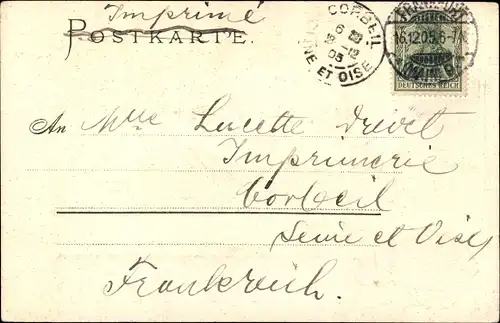 Imprimé
POSTKARTE.
CORBEIL
6 
12
05
NE ET OISE
16.12.05.6-7
(MAIN)
DEUTSCHES REICH
An Mlle Lucette Drevet
Imprimerie
Corbeil
Seine et Oise
Frankreich.